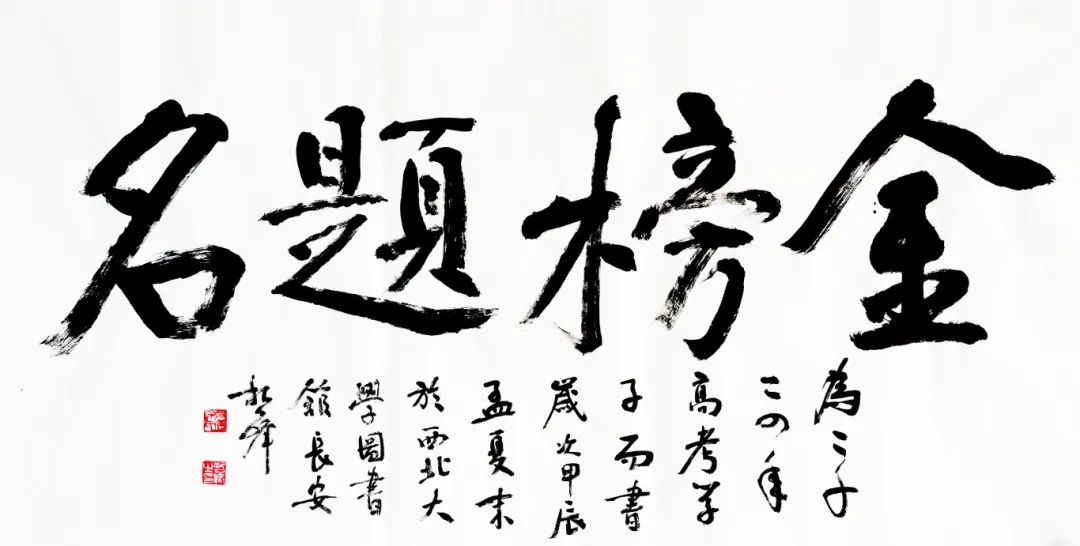 金榜題名
為二
二四年
高考学
子而書
歲次甲辰
孟夏末
於西北大
學圖書
館長安